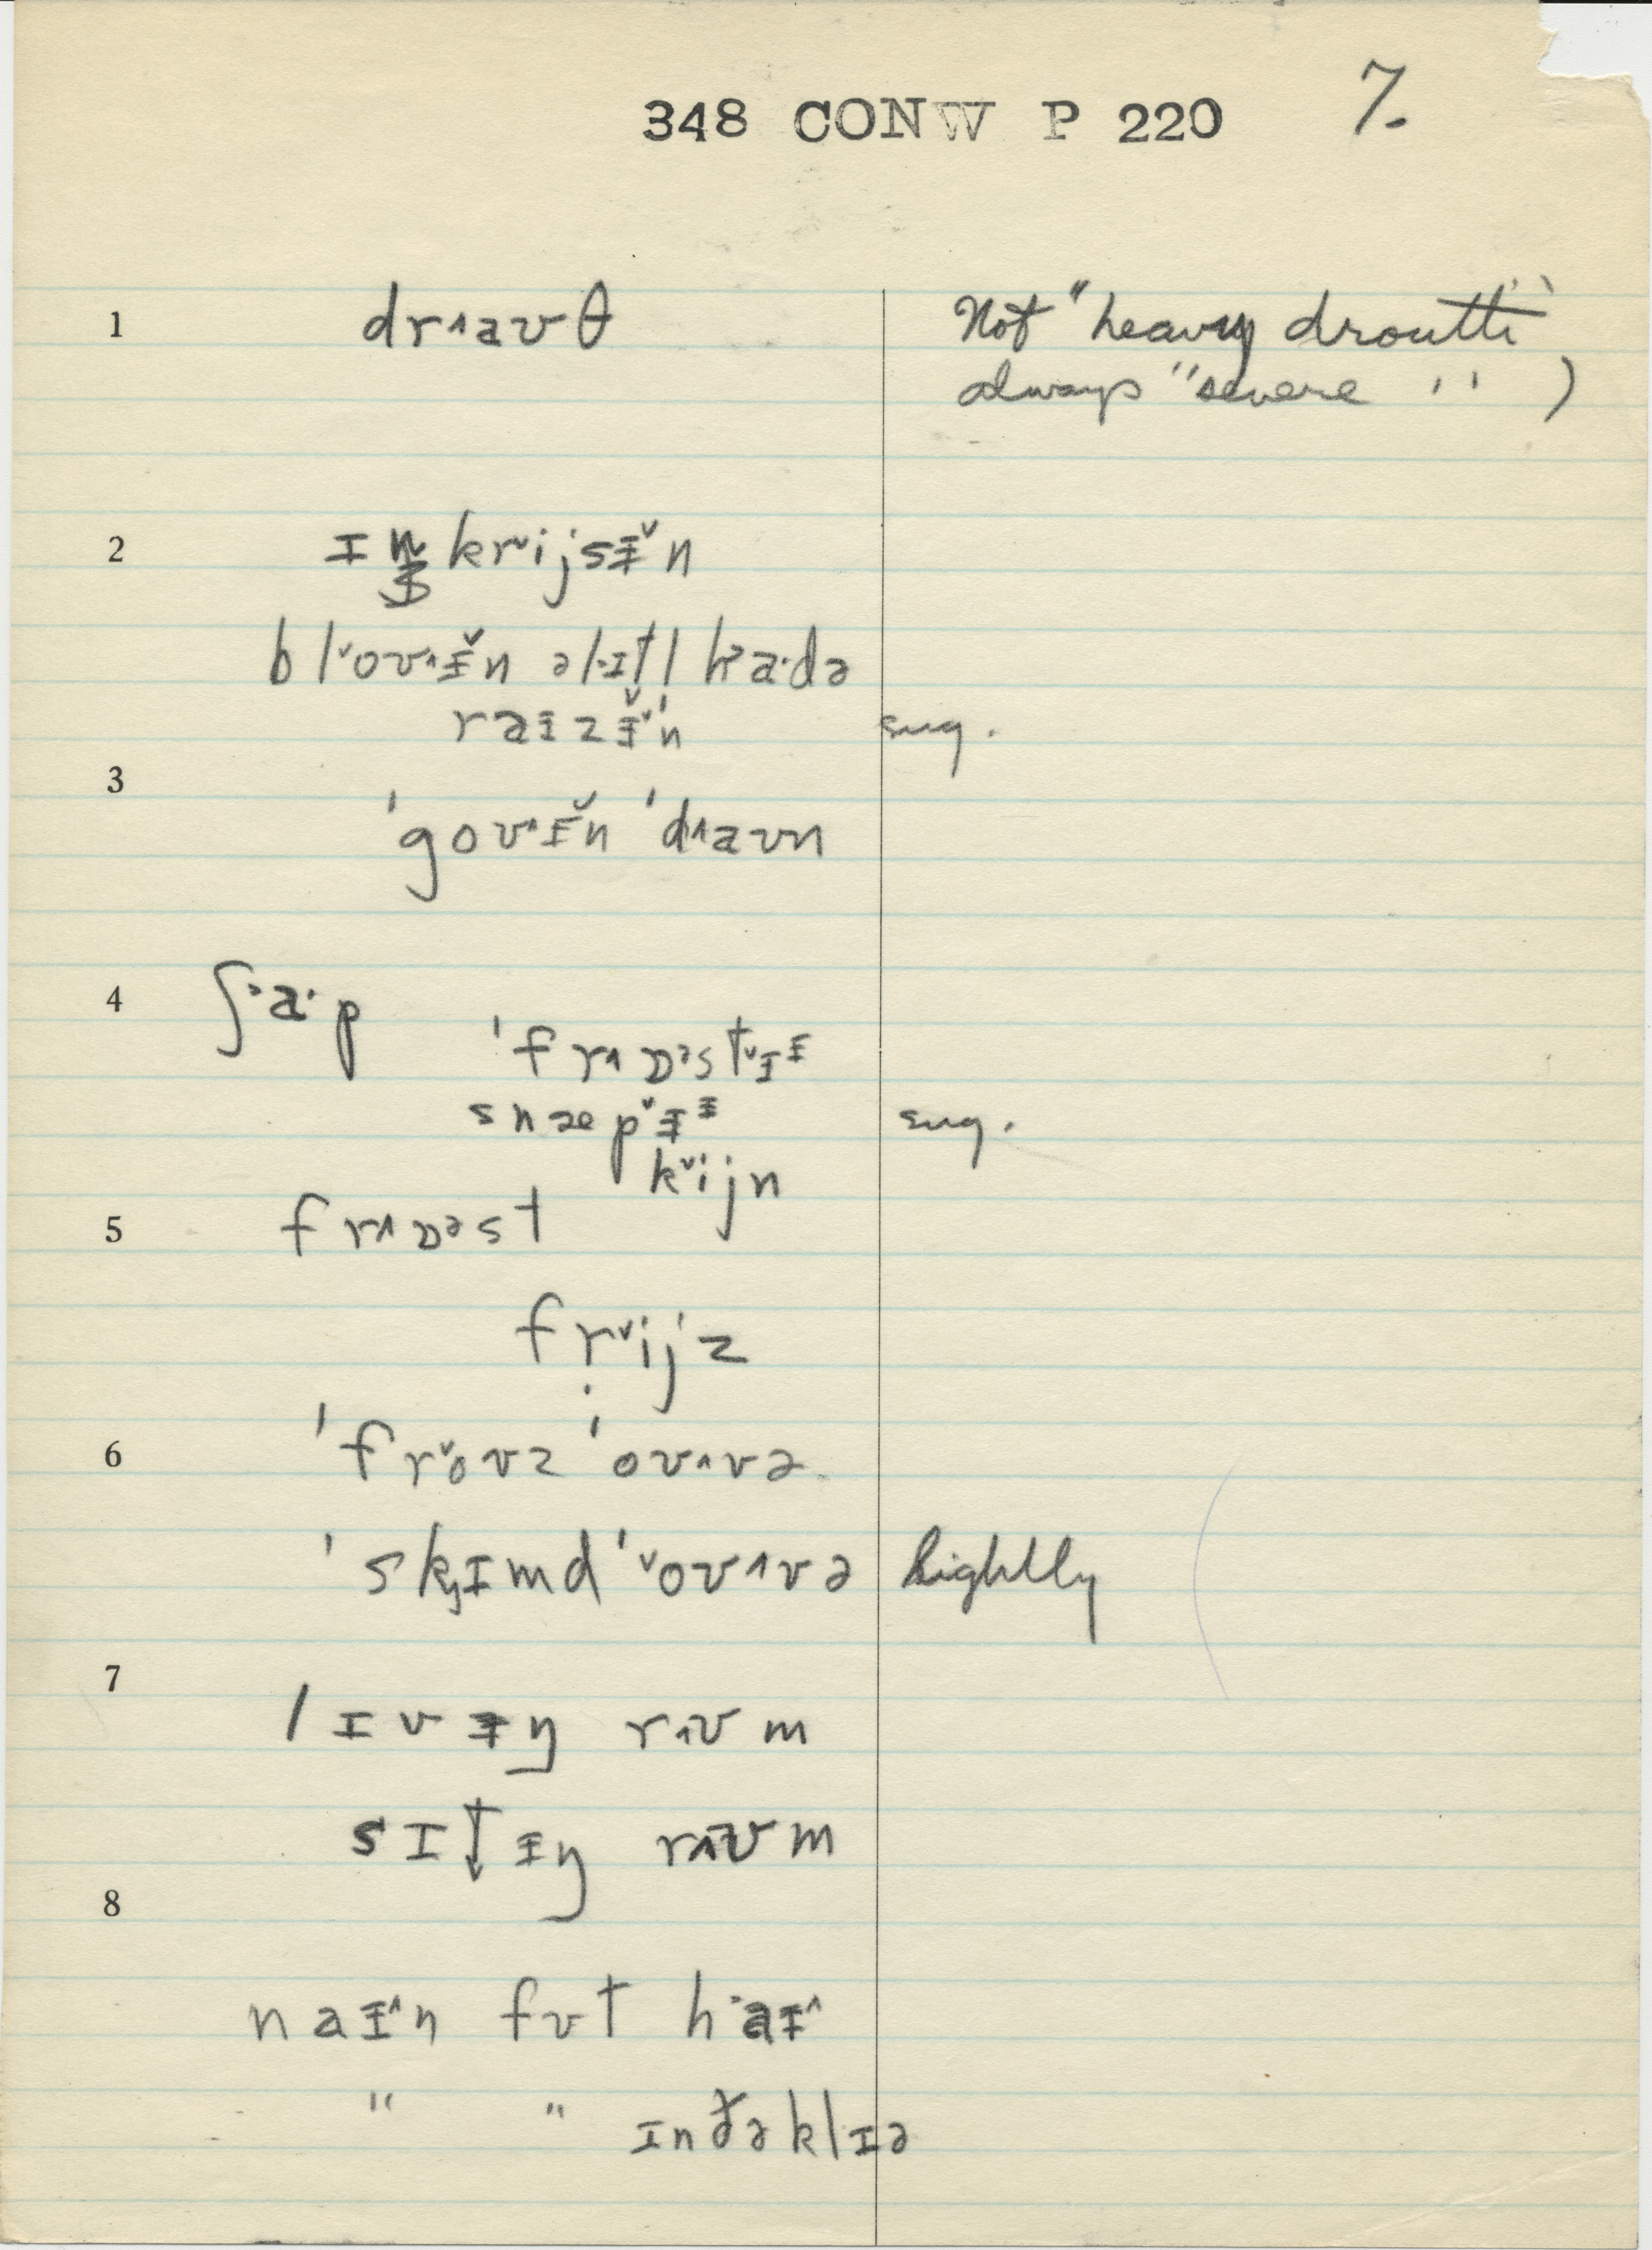 348 CONW P 220 7.
1 drʌaʊθ Not "heavy drouth"
always "severe " )
2 ɪŋkrˇijsɨ̌n
blˇoʊʌɨ̌n əlɪtl haˑdə
raɨzɨ̌n sug.
3
'goʊʌɨ̌n 'dʌaʊn
4 ʃaˑp
'frʌɒəstˇɪɨ
snæpˇɨɨ sug.
kˇijn
5 frʌɒəst
frˇijz
6 'frˇoʊz 'oʊʌvə
'skɪmd 'ˇoʊʌvə lightly
7
lɪvɨŋ rʌʊm
sɪtɨŋ rʌʊm
8
naɨʌn fʊt haɨʌ
" " ɪnðəklɪə